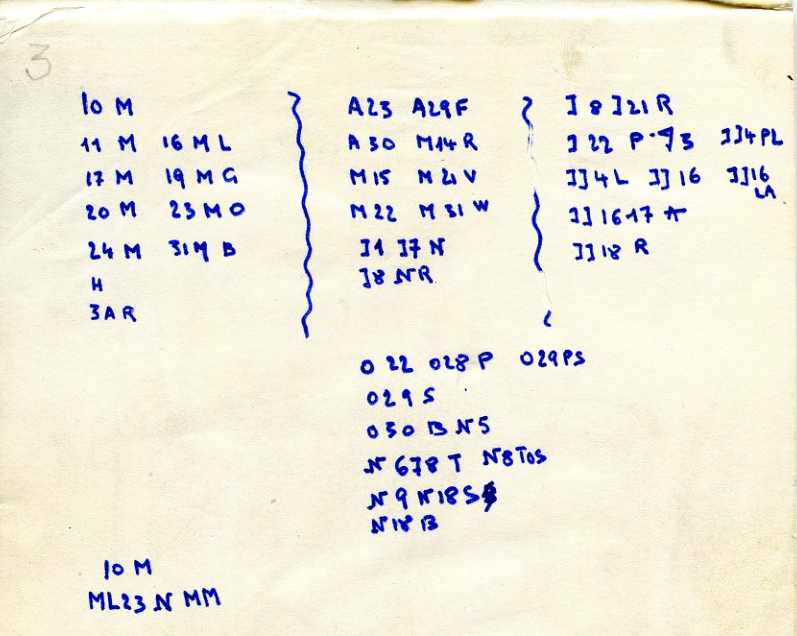 3
10 M
11 M 16 M L
17 M 19 M G
20 M 23 M O
24 M 31 M B
H
3 A R
A23 A29F
A 30 M14 R
M15 M21V
M22 M31 W
J1 J7 N
J8 NR
J 8 J21 R
J 22 P JJ4PL
JJ4L JJ16 JJ16
LA
JJ16 17 A
JJ18 R
O 22 O28 P O29PS
O29 S
O30 B N5
N 678 T N8TOS
N 9 N18S
N18 B
10 M
ML23 N MM